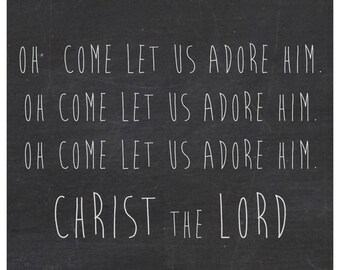 OH COME LET US ADORE HIM.
OH COME LET US ADORE HIM.
OH COME LET US ADORE HIM.
CHRIST THE LORD